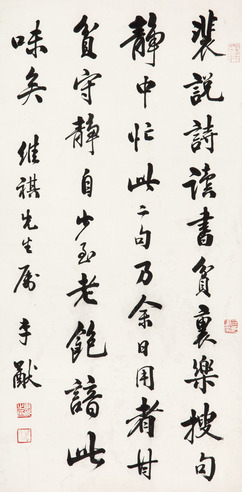 裴説詩读書貧裏樂搜句
静中忙此二句乃余日用者甘
貧守静自少至老飽諳此
味矣 維祺先生属 李猷